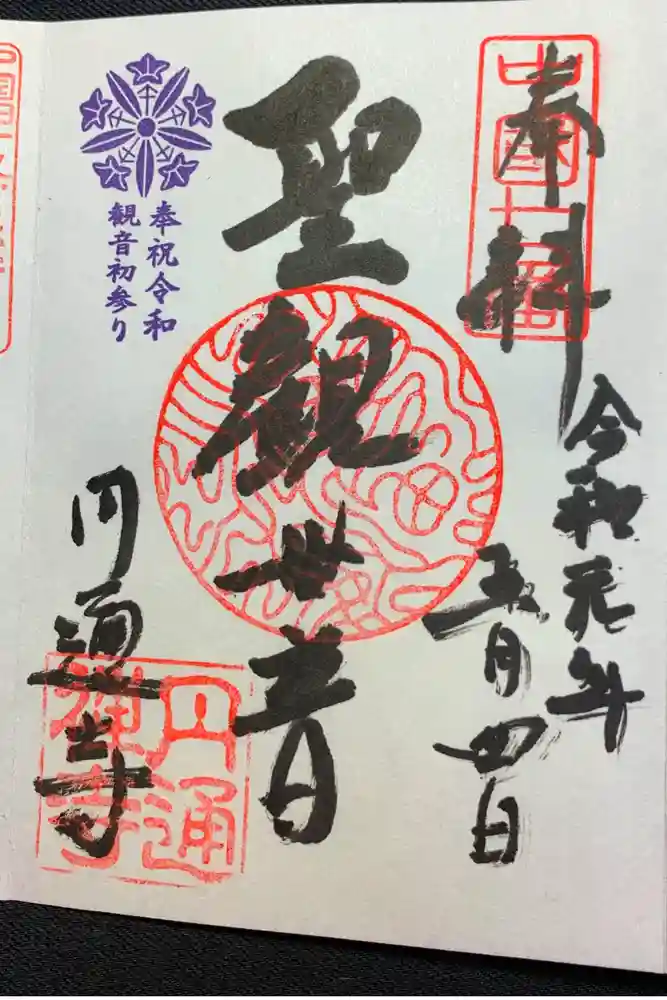 奉拝
中國
令和元年
五月四日
聖観世音
奉祝令和
観音初参り
円通寺
円通
禅寺